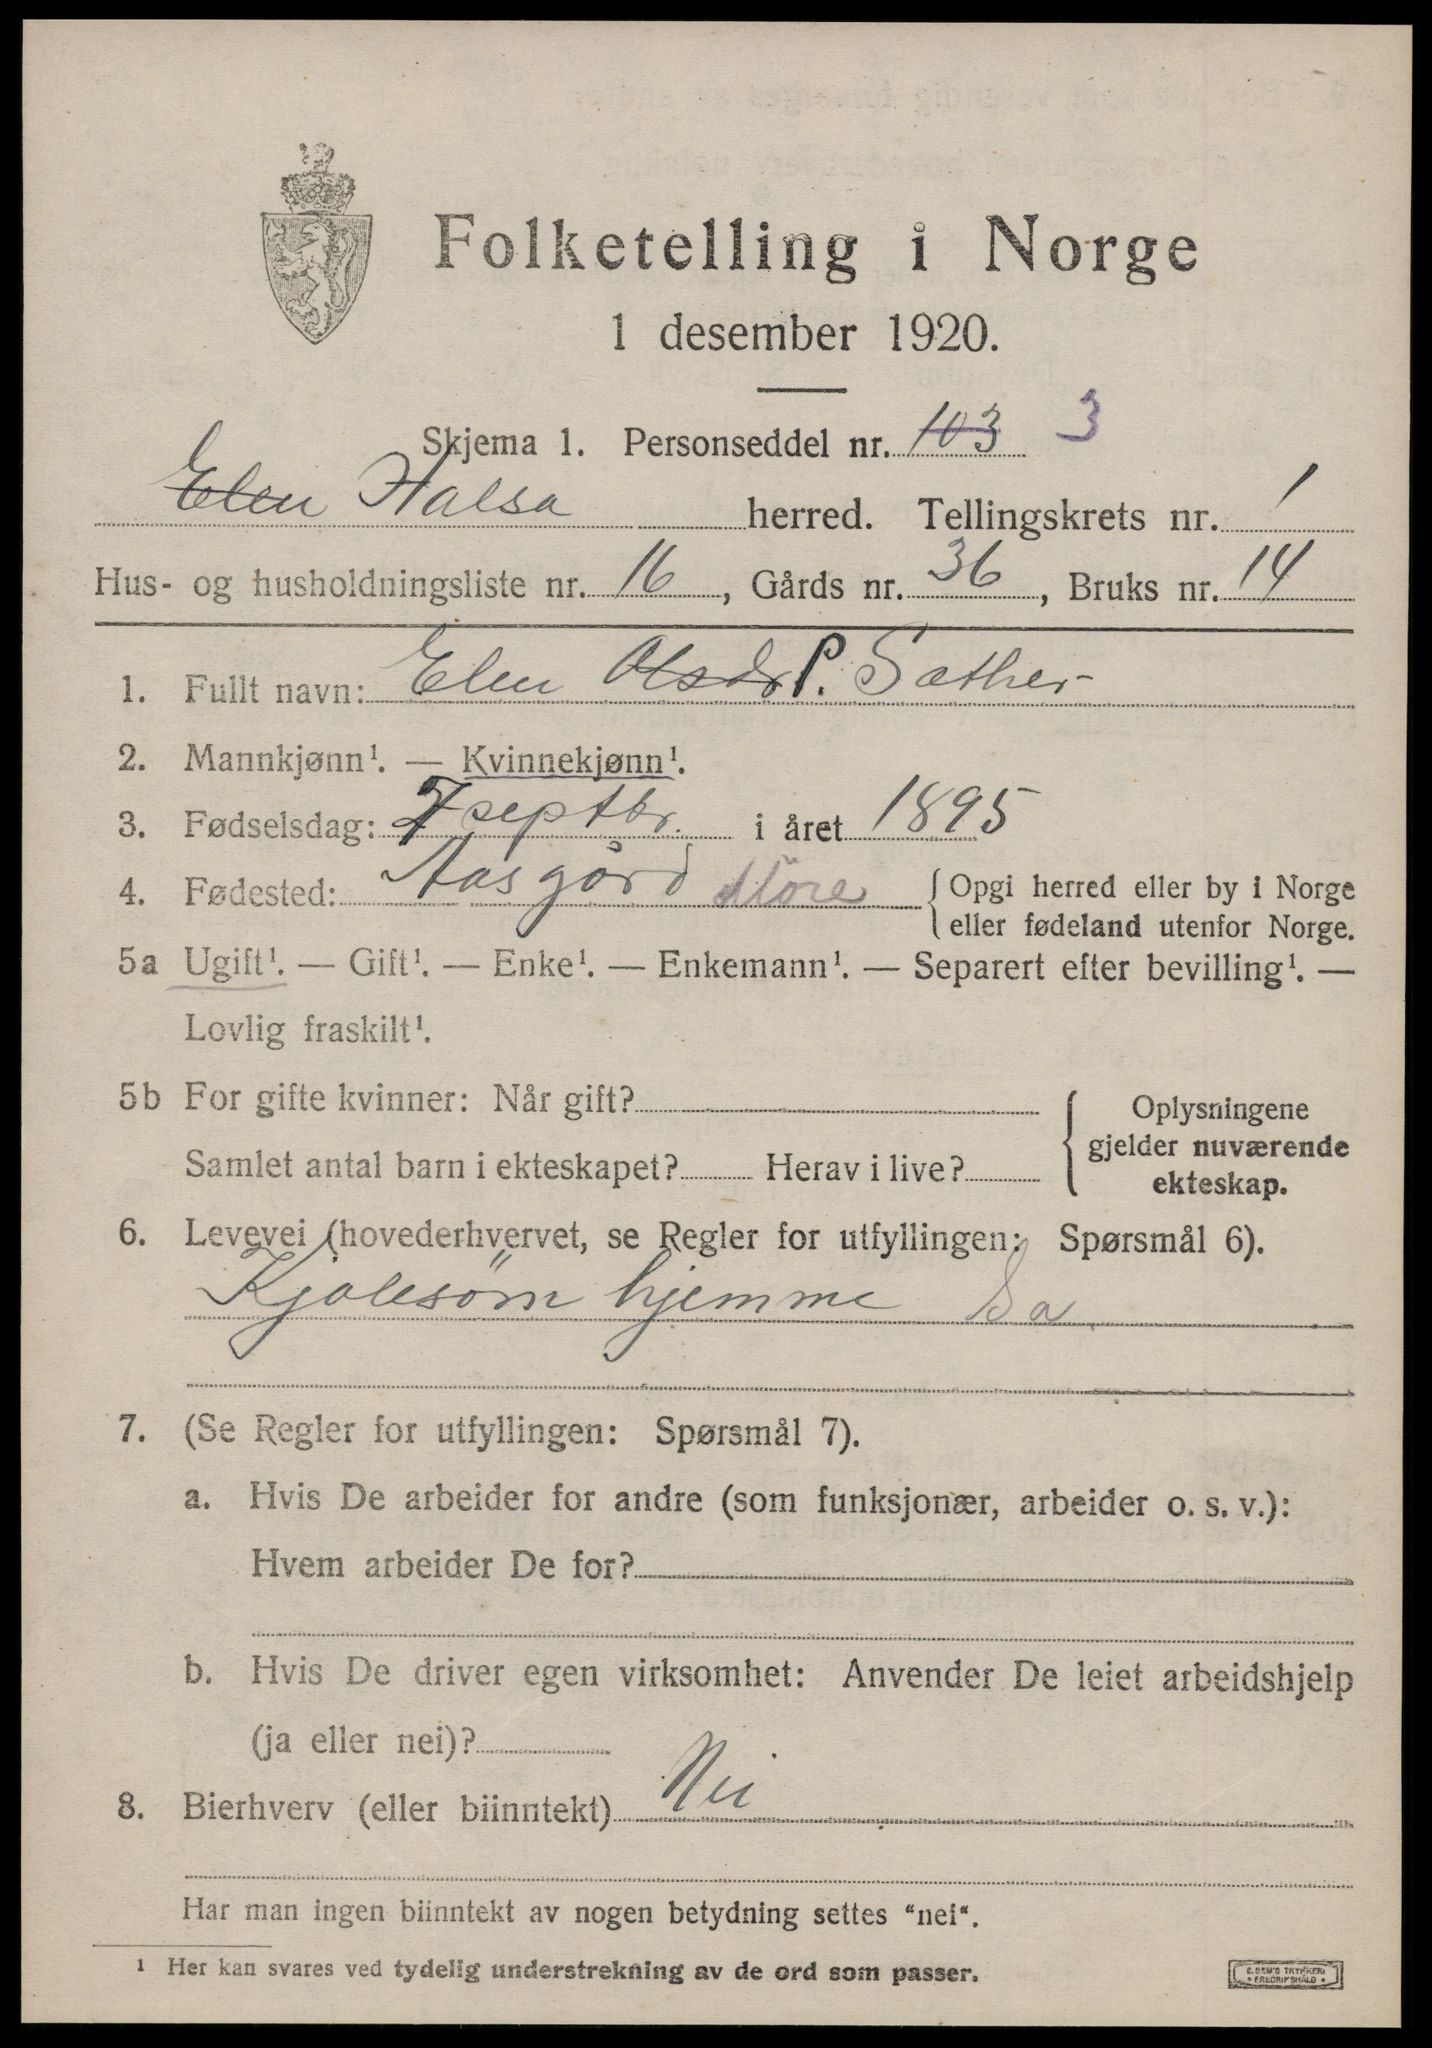 Folketelling i Norge
1 desember 1920.
Skjema 1. Personseddel nr. 103 3
Elen Halsa herred. Tellingskrets nr. 1
Hus- og husholdningsliste nr. 16, Gårds nr. 36, Bruks nr. 14
1. Fullt navn: Elen Olsdr P. Sæther
2. Mannkjønn¹. — Kvinnekjønn¹.
3. Fødselsdag: 7 septbr. i året 1895
4. Fødested: Aasgård Möre { Opgi herred eller by i Norge
eller fødeland utenfor Norge.
5a Ugift¹. — Gift¹. — Enke¹. — Enkemann¹. — Separert efter bevilling¹. —
Lovlig fraskilt¹.
5b For gifte kvinner: Når gift?
Samlet antal barn i ekteskapet? Herav i live?
{ Oplysningene
gjelder nuværende
ekteskap.
6. Levevei (hovederhvervet, se Regler for utfyllingen: Spørsmål 6).
Kjolesöm hjemme
7. (Se Regler for utfyllingen: Spørsmål 7).
a. Hvis De arbeider for andre (som funksjonær, arbeider o. s. v.):
Hvem arbeider De for?
b. Hvis De driver egen virksomhet: Anvender De leiet arbeidshjelp
(ja eller nei)?
8. Bierhverv (eller biinntekt) Nei
Har man ingen biinntekt av nogen betydning settes "nei".
¹ Her kan svares ved tydelig understrekning av de ord som passer.
E. SEM'S TRYKKERI
• FREDRIKSHALD •